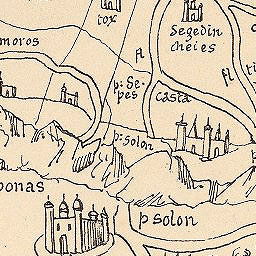 tox
Segedin
cheies
moros
fl
fl
p: Se-
pes
casta
p: solon
ponas
p solon